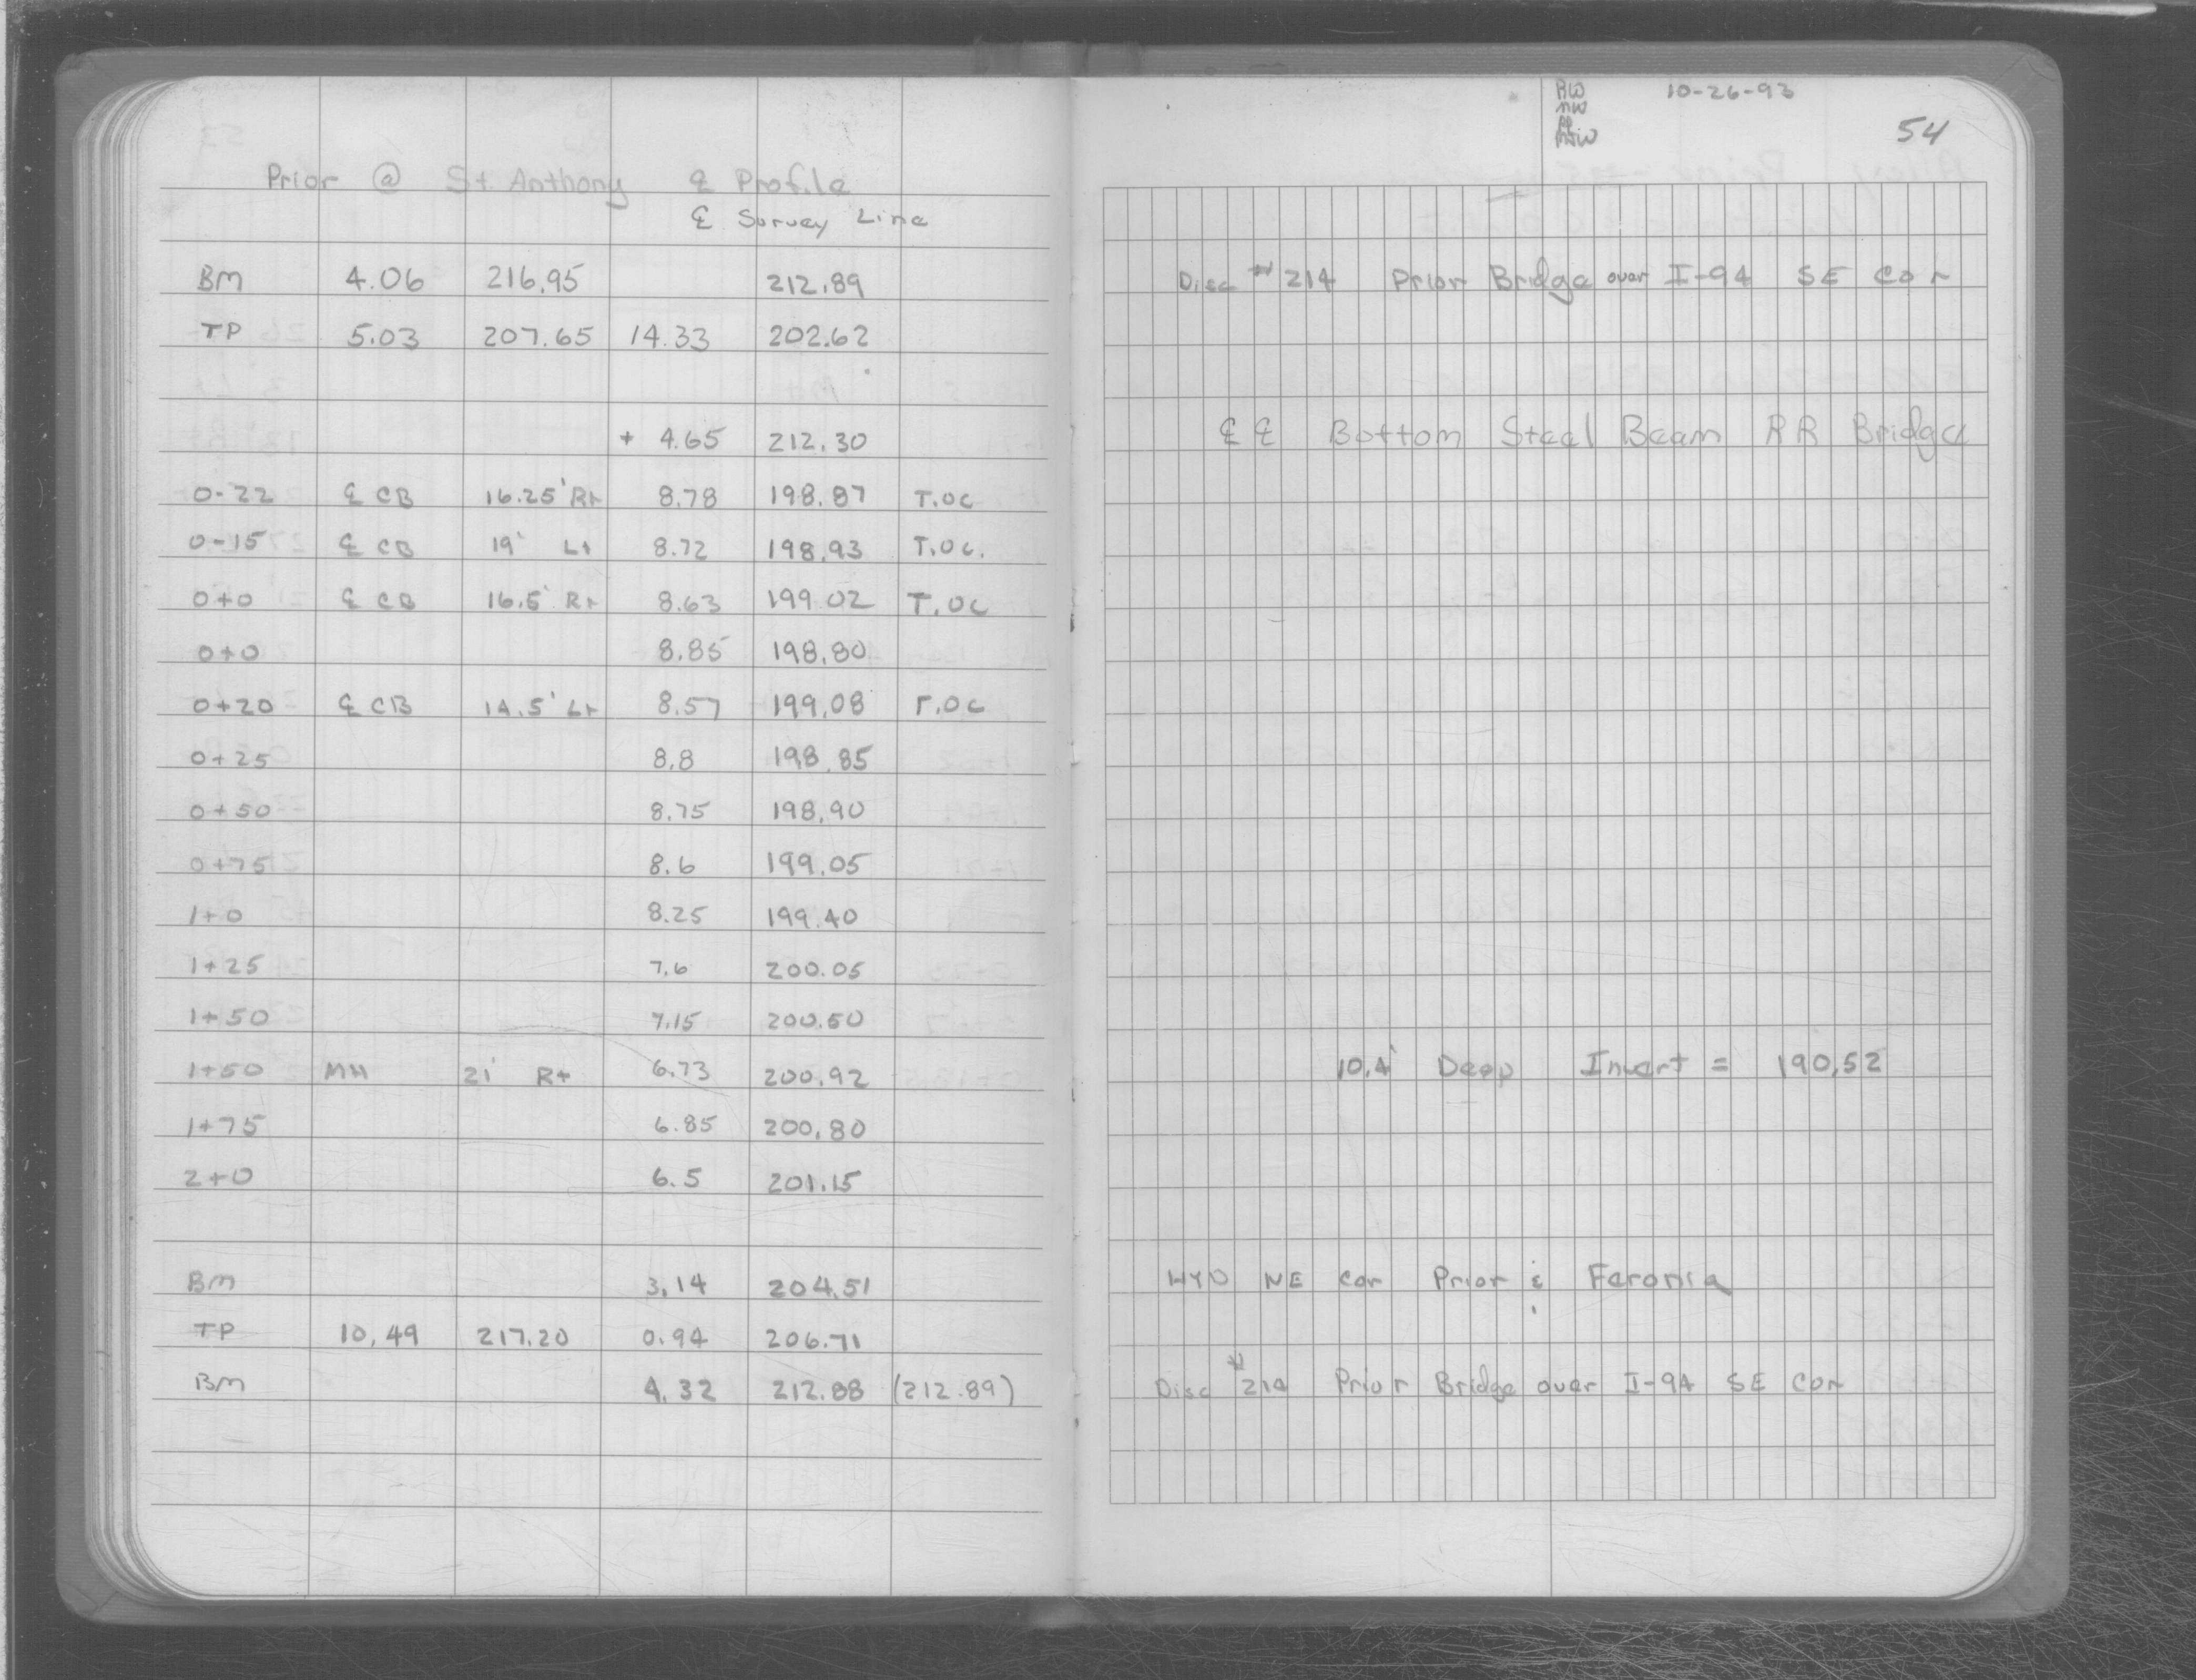 Prior @ St. Anthony ℄ Profile
℄ Survey Line
BM 4.06 216.95 212.89
TP 5.03 207.65 14.33 202.62
+ 4.65 212.30
0-22 ℄ CB 16.25' Rt 8.78 198.87 T.OC
0-15 ℄ CB 19' Lt 8.72 198.93 T.OC.
0+0 ℄ CB 16.5' Rt 8.63 199.02 T.OC
0+0 8.85 198.80
0+20 ℄ CB 14.5' Lt 8.57 199.08 T.OC
0+25 8.8 198.85
0+50 8.75 198.90
0+75 8.6 199.05
1+0 8.25 199.40
1+25 7.6 200.05
1+50 7.15 200.50
1+50 MH 21' Rt 6.73 200.92
1+75 6.85 200.80
2+0 6.5 201.15
BM 3.14 204.51
TP 10.49 217.20 0.94 206.71
BM 4.32 212.88 (212.89)
RW 10-26-93
MW
54
Disc #214 Prior Bridge over I-94 SE Cor
℄ ℄ Bottom Steel Beam RR Bridge
10.4' Deep Invert = 190.52
HYD NE Cor Prior & Feronia
Disc #214 Prior Bridge over I-94 SE Cor